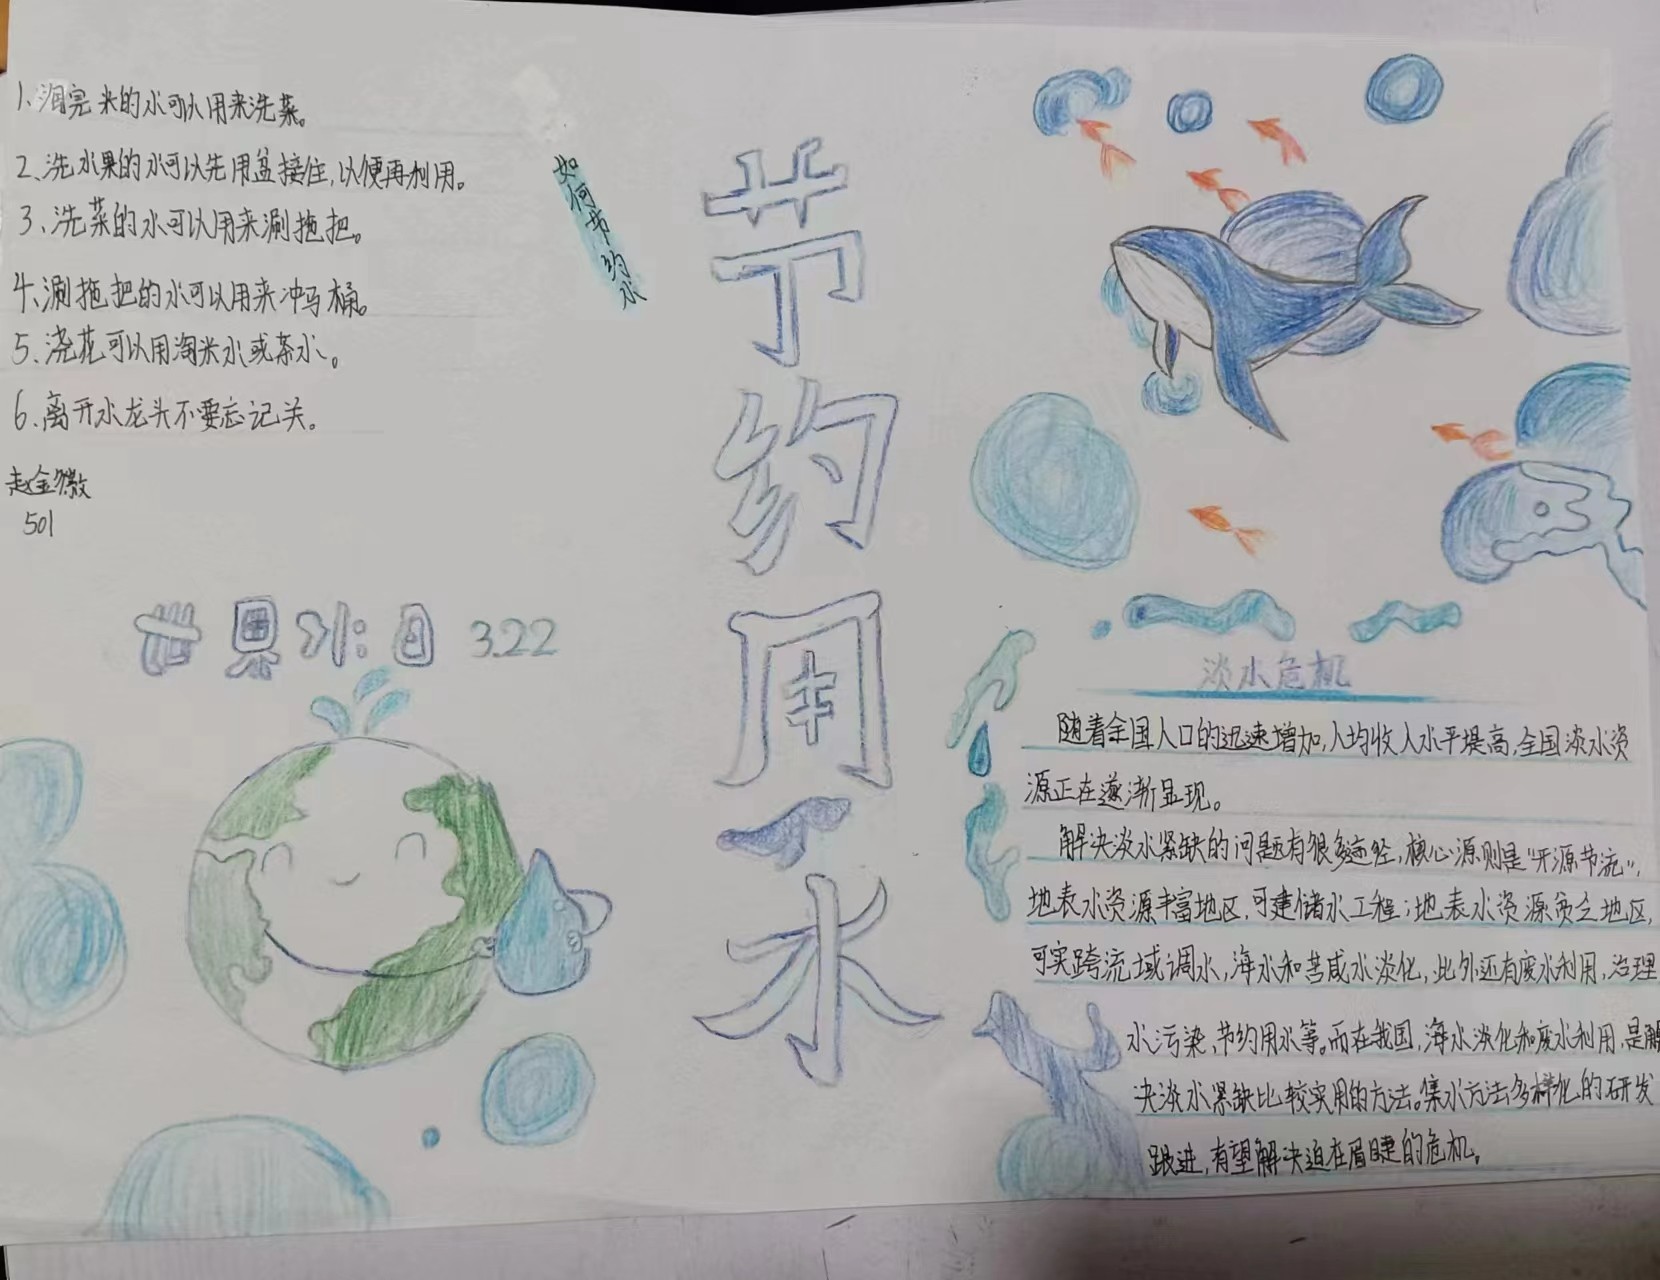 1、淘完米的水可以用来洗菜。
2、洗水果的水可以先用盆接住,以便再利用。
3、洗菜的水可以用来涮拖把。
4、涮拖把的水可以用来冲马桶。
5、浇花可以用淘米水或茶水。
6、离开水龙头不要忘记关。
赵金微
501
如何节约水
节约用水
世界水日 3.22
淡水危机
随着全国人口的迅速增加,人均收入水平提高,全国淡水资
源正在逐渐显现。
解决淡水紧缺的问题有很多途径,核心源则是“开源节流”,
地表水资源丰富地区,可建储水工程;地表水资源贫乏地区,
可实跨流域调水,海水和苦咸水淡化,此外还有废水利用,治理
水污染、节约用水等。而在我国,海水淡化和废水利用,是解
决淡水紧缺比较实用的方法。集水方法多样化的研发
跟进,有望解决迫在眉睫的危机。